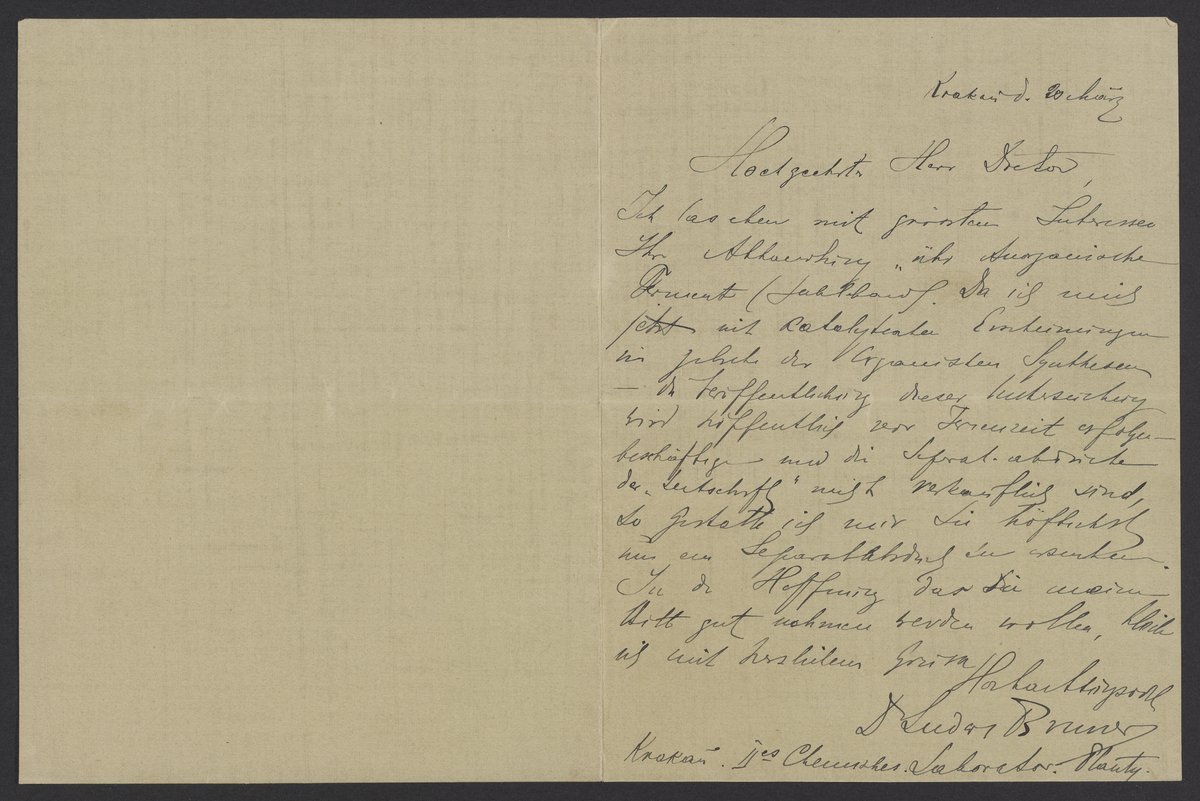 Krakau d. 20 März
Hochgeehrter Herr Doctor,
Ich las eben mit grössten Interessen
Ihre "über Anorganische
Fermente
jetzt mit katalytischen Erscheinungen
im gebiete der Organischen Synthesen
— die Veröffentlichung dieser Untersuchung
wird hoffentlich vor Ferienzeit erfolgen —
beschäftige und die Separat-abdrücke
der "Zeitschrift" nicht verkäuflich sind,
so gestatte ich mir Sie höflichst
um ein Separatabdruck zu ersuchen.
In der Hoffnung das Sie meine
Bitte gut nehmen werden wollen, bleibe
ich mit herzlichem Gruss
Hochachtungsvoll
Dr Ludwig Bruner
Krakau. IIes Chemisches. Laborator. Planty.